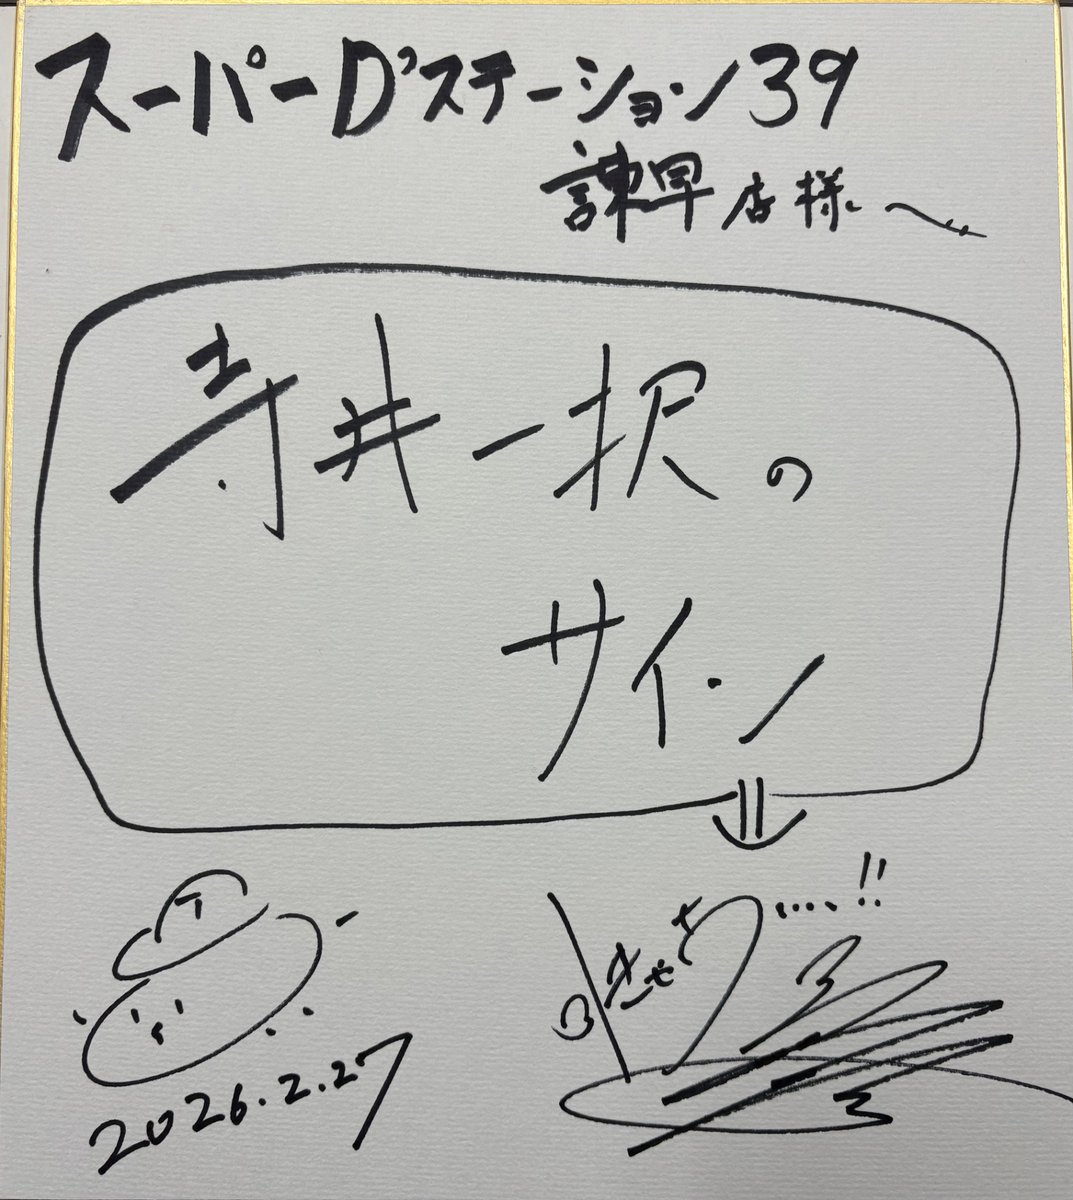 スーパーD'ステーション39
諫早店様
寺井一択の
サイン
T
2026.2.27